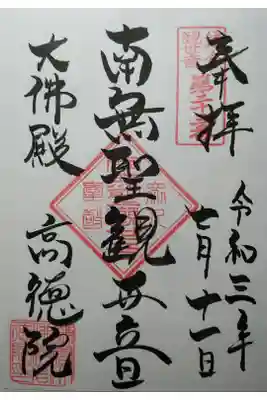 奉拝
令和三年
七月十一日
南無聖観世音
大佛殿
高徳院